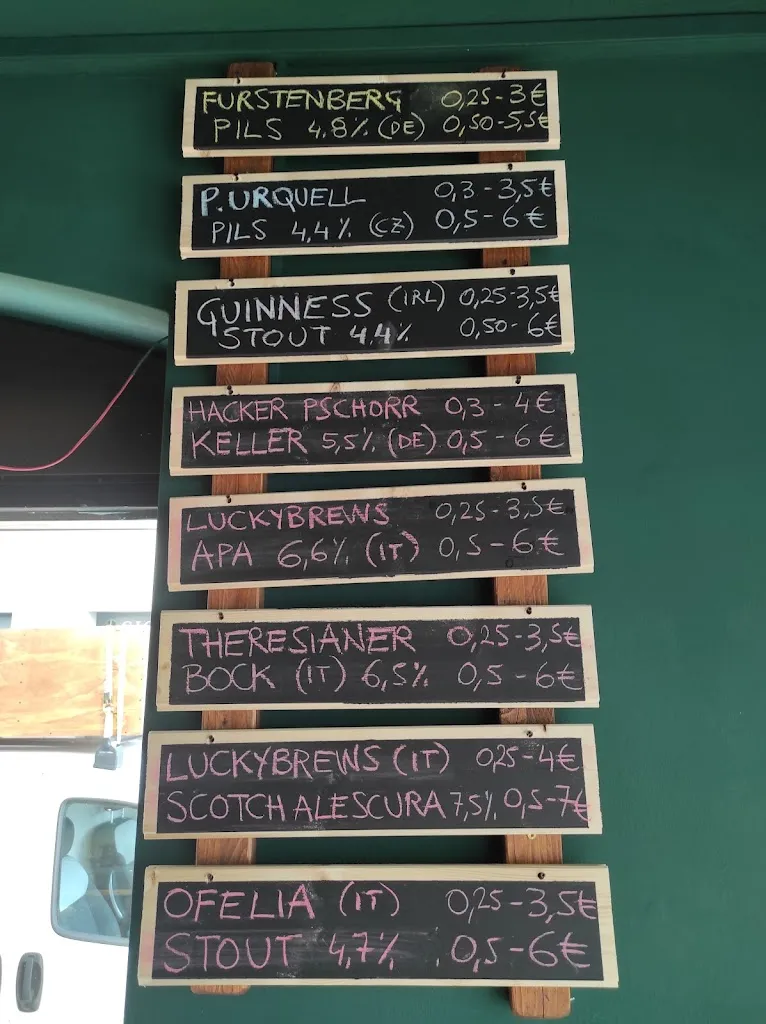 FURSTENBERG 0,25-3€
PILS 4.8% (DE) 0,50-5,5€
P.URQUELL 0,3-3,5€
PILS 4,4% (CZ) 0,5-6€
GUINNESS (IRL) 0,25-3,5€
STOUT 4.4% 0,50-6€
HACKER PSCHORR 0,3-4€
KELLER 5,5% (DE) 0,5-6€
LUCKYBREWS 0,25-3,5€
APA 6,6% (IT) 0,5-6€
THERESIANER 0,25-3,5€
BOCK (IT) 6,5% 0,5-6€
LUCKYBREWS (IT) 0,25-4€
SCOTCH ALE SCURA 7,5% 0,5-7€
OFELIA (IT) 0,25-3,5€
STOUT 4,7% 0,5-6€